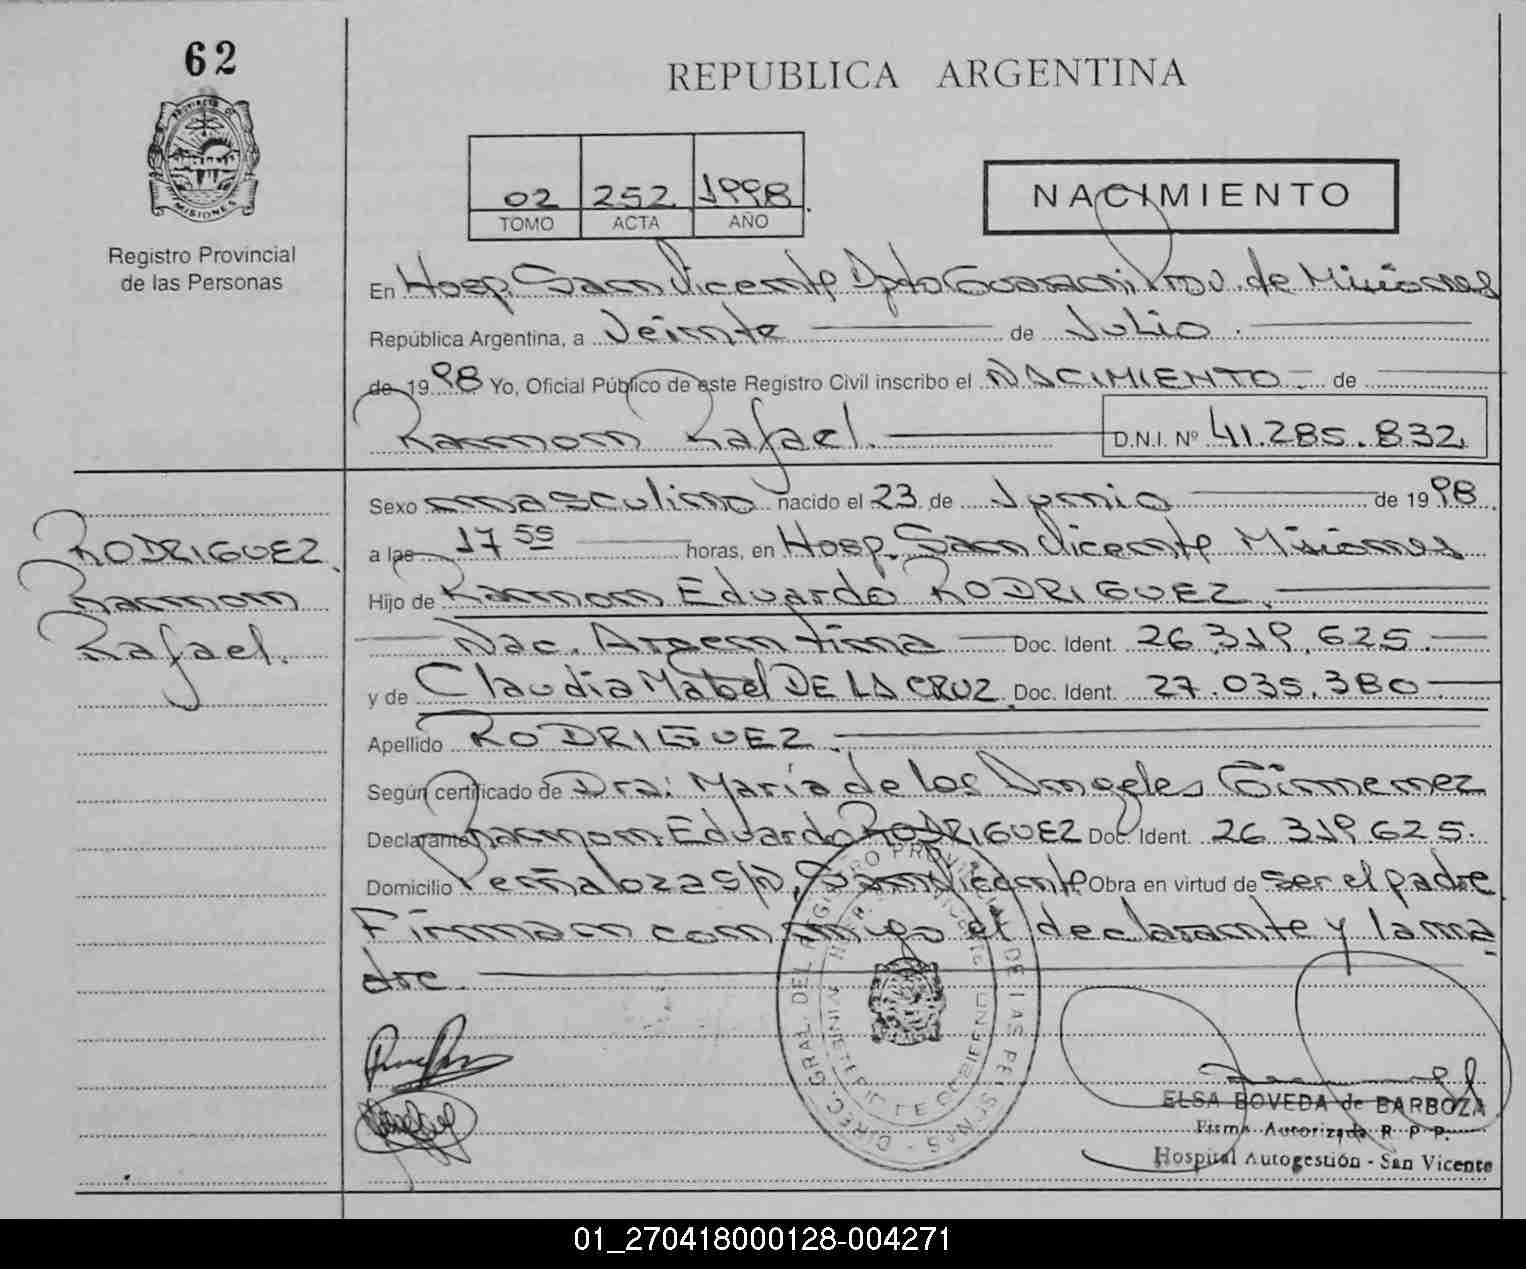 62
PROVINCIA DE
MISIONES
Registro Provincial
de las Personas
REPUBLICA ARGENTINA
02 252 1998
TOMO ACTA AÑO
NACIMIENTO
En Hosp. San Vicente Dpto Guarani Prov. de Misiones
República Argentina, a Veinte de Julio.
de 1998 Yo, Oficial Público de este Registro Civil inscribo el NACIMIENTO de
Ramon Rafael. D.N.I. Nº 41.285.832
RODRIGUEZ
Ramon
Rafael.
Sexo masculino nacido el 23 de Junio de 1998
a las 17 55 horas, en Hosp. San Vicente Misiones
Hijo de Ramon Eduardo RODRIGUEZ.
Nac. Argentina Doc. Ident. 26.319.625.
y de Claudia Mabel DE LA CRUZ. Doc. Ident. 27.035.380
Apellido RODRIGUEZ.
Según certificado de Dra: María de los Angeles Gimenez
Declarante Ramon Eduardo RODRIGUEZ Doc. Ident. 26.319.625.
Domicilio Peñaloza S/N, San Vicente Obra en virtud de ser el padre
Firman conmigo el declarante y la ma
dre.
DIREC. GRAL. DEL REGISTRO PROVINCIAL DE LAS PERSONAS
MINISTERIO DE GOBIERNO
ELSA BOVEDA de BARBOZA
Firma Autorizada R P P.
Hospital Autogestión - San Vicente
01_270418000128-004271